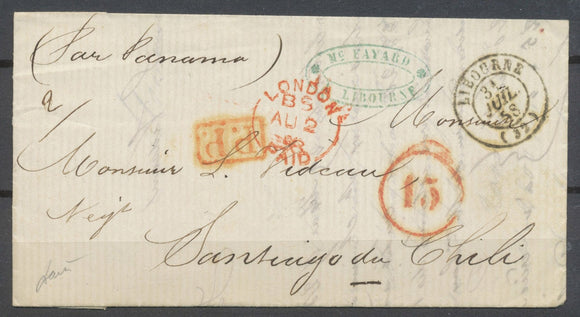 (Par Panama)
Mc FAYARD
LIBOURNE
LIBOURNE
31
JUIL.
58
LONDON
BS
AU 2
58
PAID
P.P.
Monsieur
Monsieur L. Videau,
15
Negt
Santiago du Chili